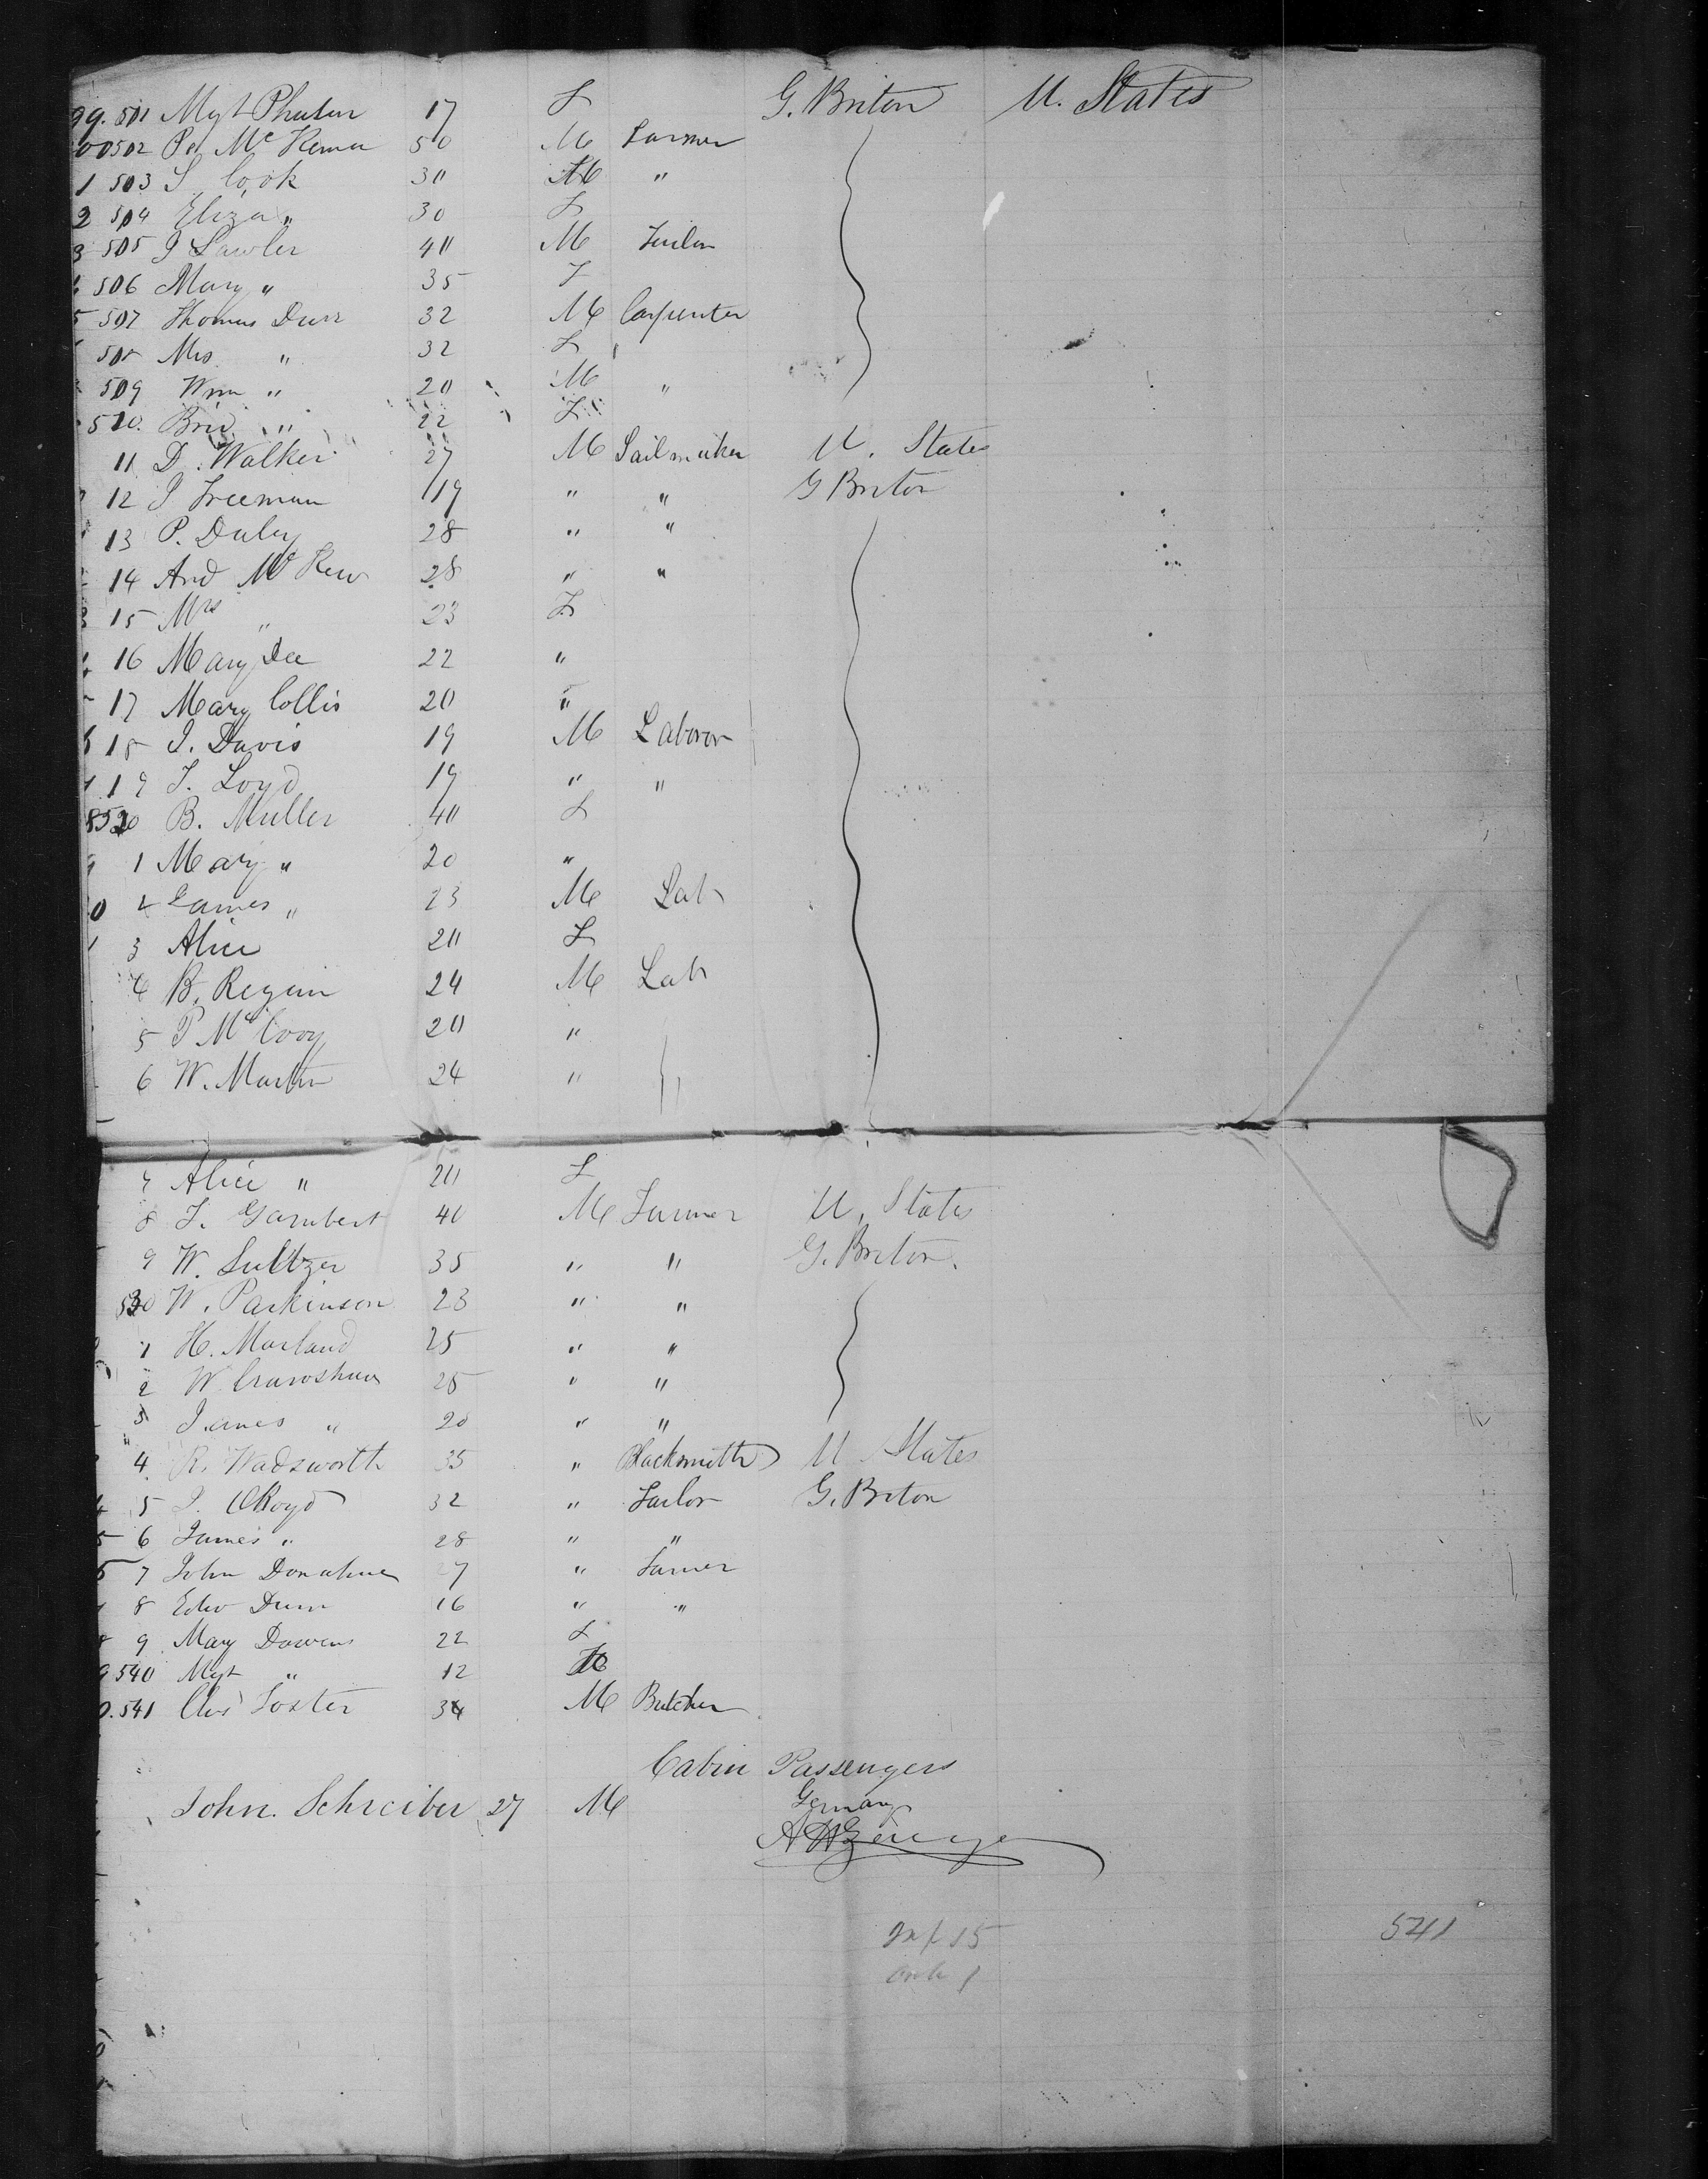 99. 501 Mgt 17 F G. Briton U. States
00 502 Pat Mc 50 M Farmer
1 503 S Cook 30 M "
2 504 Eliza " 30 F
3 505 J Lawler 40 M
506 Mary " 35 F
5 507 Thomas Durr 32 M Carpenter
508 Mrs " 32 F
509 Wm " 20 M "
510. Brid " 22 F
11 D. Walker 27 M Sailmaker U. States
12 J Freeman 19 " " G Briton
13 P. Daley 28 " "
14 And Mc Kew 28 " "
15 Mrs " 23 F
16 Mary Dee 22 "
17 Mary Collis 20 "
18 J. Davis 19 M Laboror
19 T. Loyd 19 " "
8 520 B. Muller 40 F
1 Mary " 20 "
0 2 James " 23 M Lab
3 Alice 20 F
4 B. Regan 24 M Lab
5 P Mc Coy 20 "
6 W. Martin 24 " "
7 Alice " 20 F
8 T. Gambert 40 M Farmer U. States
9 W. Sultzer 35 " " G. Briton.
530 W. Parkinson 23 " "
1 H. Marland 25 " "
2 W Crawshaw 25 " "
3 James " 20 " "
4. R. Wadsworth 35 " Blacksmith U States
5 J. OKoyd 32 " Tailor G. Briton
5 6 James " 28 " "
7 John Donahue 27 " Farmer
8 Edw Dunn 16 " "
9 Mary Dowens 22 F
9 540 Mgt " 12 F
0. 541 Chs Foster 34 M Butcher
Cabin Passengers
John. Schreiber 27 M Germany
Inf 15 541